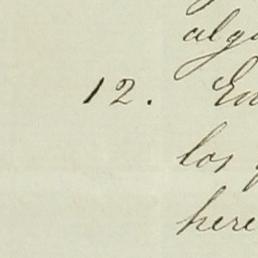 algu
12. En
los
here